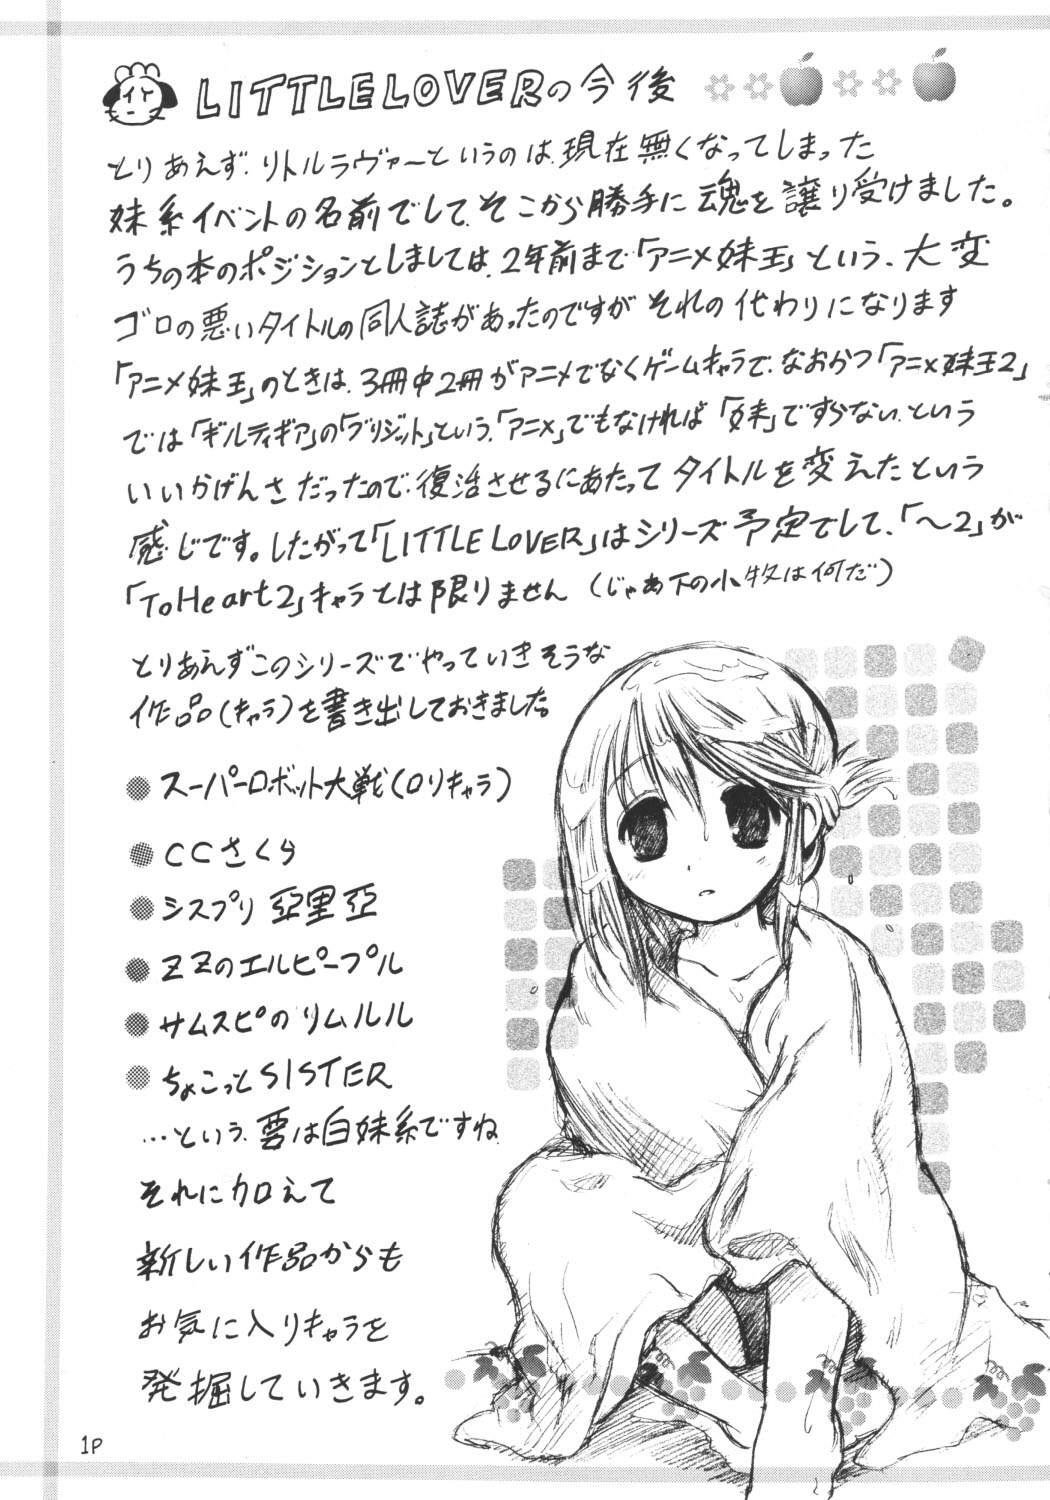 LITTLE LOVERの今後
とりあえず、リトルラヴァーというのは、現在無くなってしまった
妹系イベントの名前でして、そこから勝手に魂を譲り受けました。
うちの本のポジションとしましては、2年前まで「アニメ妹王」という、大変
ゴロの悪いタイトルの同人誌があったのですが それの代わりになります
「アニメ妹王」のときは、3冊中2冊がアニメでなくゲームキャラで、なおかつ「アニメ妹王2」
では「ギルティギア」の「ブリジット」という、「アニメ」でもなければ「妹」ですらない、という
いいかげんさだったので、復活させるにあたってタイトルを変えたという
感じです。したがって「LITTLE LOVER」はシリーズ予定でして、「〜2」が
「ToHeart2」キャラとは限りません(じゃあ下の小牧は何だ)
とりあえずこのシリーズでやっていきそうな
作品(キャラ)を書き出しておきました。
スーパーロボット大戦(ロリキャラ)
CCさくら
シスプリ 亞里亞
ZZのエルピープル
サムスピのリムルル
ちょこっとSISTER
…という、要は白妹系ですね
それに加えて
新しい作品からも
お気に入りキャラを
発掘していきます。
1P